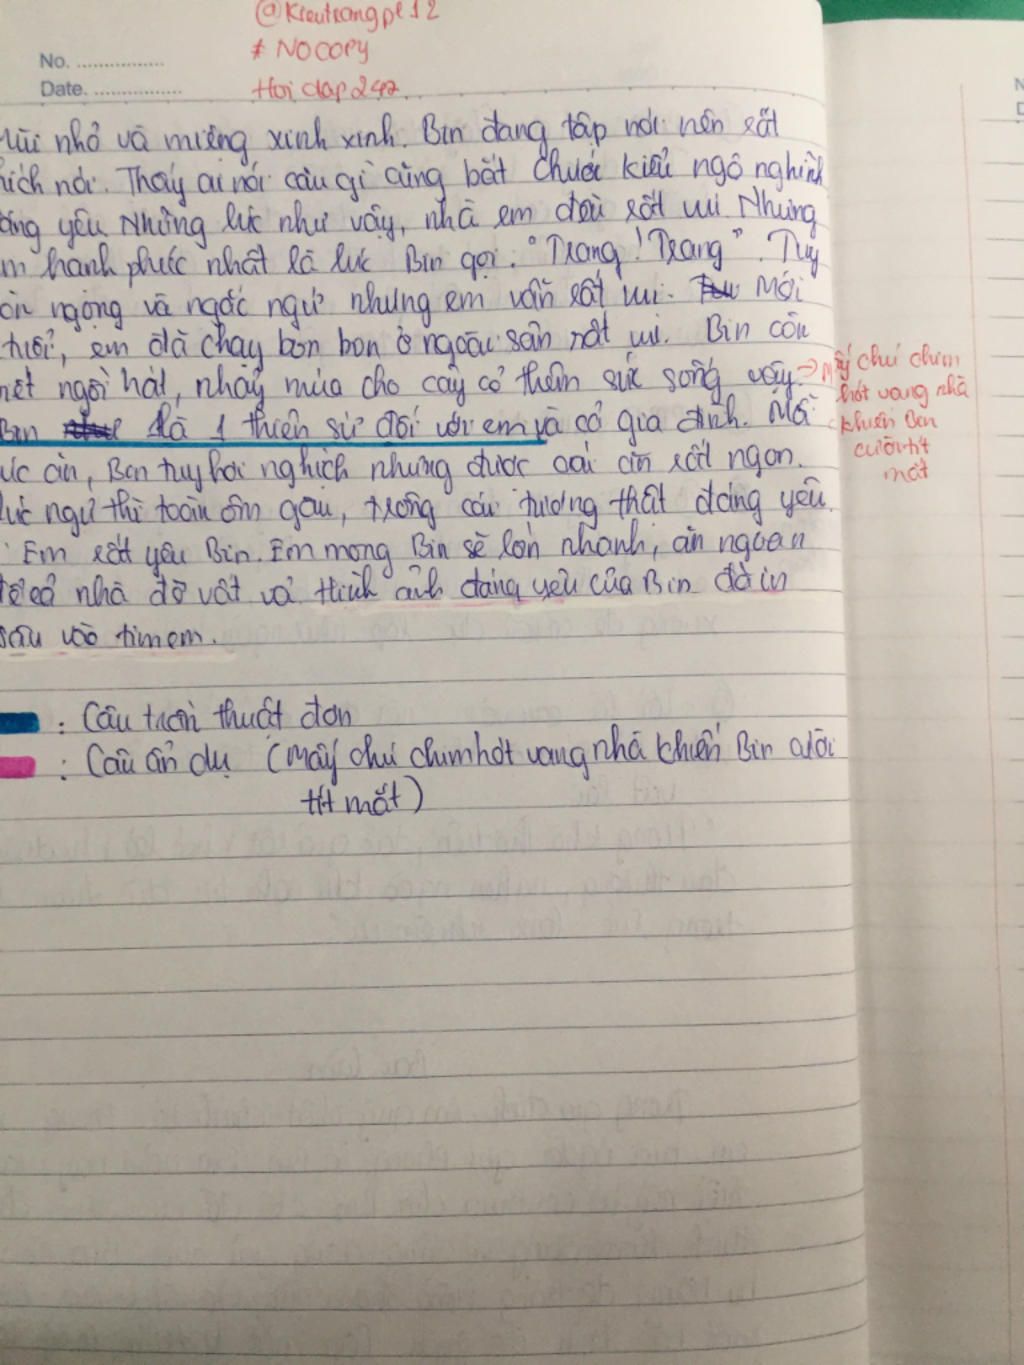 @Kieutrangpl12
No. ................ # NOCOPY
Date. ................ Hoi dap 247
Mũi nhỏ và miệng xinh xinh. Bin đang tập nói nên rất
hích nói. Thấy ai nói câu gì cũng bắt chước kiểu ngộ nghĩnh
áng yêu. Những lúc như vậy, nhà em đều rất vui. Nhưng
m hạnh phúc nhất là lúc Bin gọi: "Trang! Trang". Tuy
òn ngọng và ngốc ngứ nhưng em vẫn rất vui. Mới
tuổi, em đã chạy bon bon ở ngoài sân rất vui. Bin còn
hét ngồi hát, nhảy múa cho cây cỏ thêm sức sống vậy.
→ Mấy chú chim
hót vang nhà
khiến Bin
cười tít
mắt
Bin là 1 thiên sứ đối với em và cả gia đình. Mỗi
úc ăn, Bin tuy hơi nghịch nhưng được cái ăn rất ngon.
Lúc ngủ thì toàn ôm gấu, trông cái tướng thật đáng yêu.
Em rất yêu Bin. Em mong Bin sẽ lớn nhanh, ăn ngoan
để cả nhà đỡ vất vả. Hình ảnh đáng yêu của Bin đã in
sâu vào tim em.
: Câu trần thuật đơn
: Câu ẩn dụ (Mấy chú chim hót vang nhà khiến Bin cười
tít mắt)